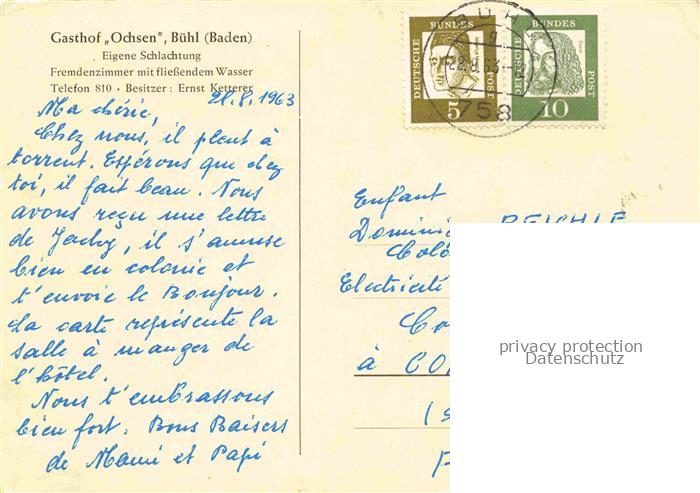 Gasthof „Ochsen", Bühl (Baden)
Eigene Schlachtung
Fremdenzimmer mit fließendem Wasser
Telefon 810 · Besitzer: Ernst Ketterer
28.8.1963
Ma chérie,
Chez nous, il pleut à
torrent. Espérons que chez
toi, il fait beau. Nous
avons reçu une lettre
de Jacky, il s'amuse
bien en colonie et
t'envoie le Bonjour.
La carte représente la
salle à manger de
l'hôtel.
Nous t'embrassons
bien fort. Bons Baisers
de Mami et Papi
DEUTSCHE
BUNDES
POST
5
DEUTSCHE
BUNDES
POST
10
758
Enfant
Electricité
à
privacy protection
Datenschutz